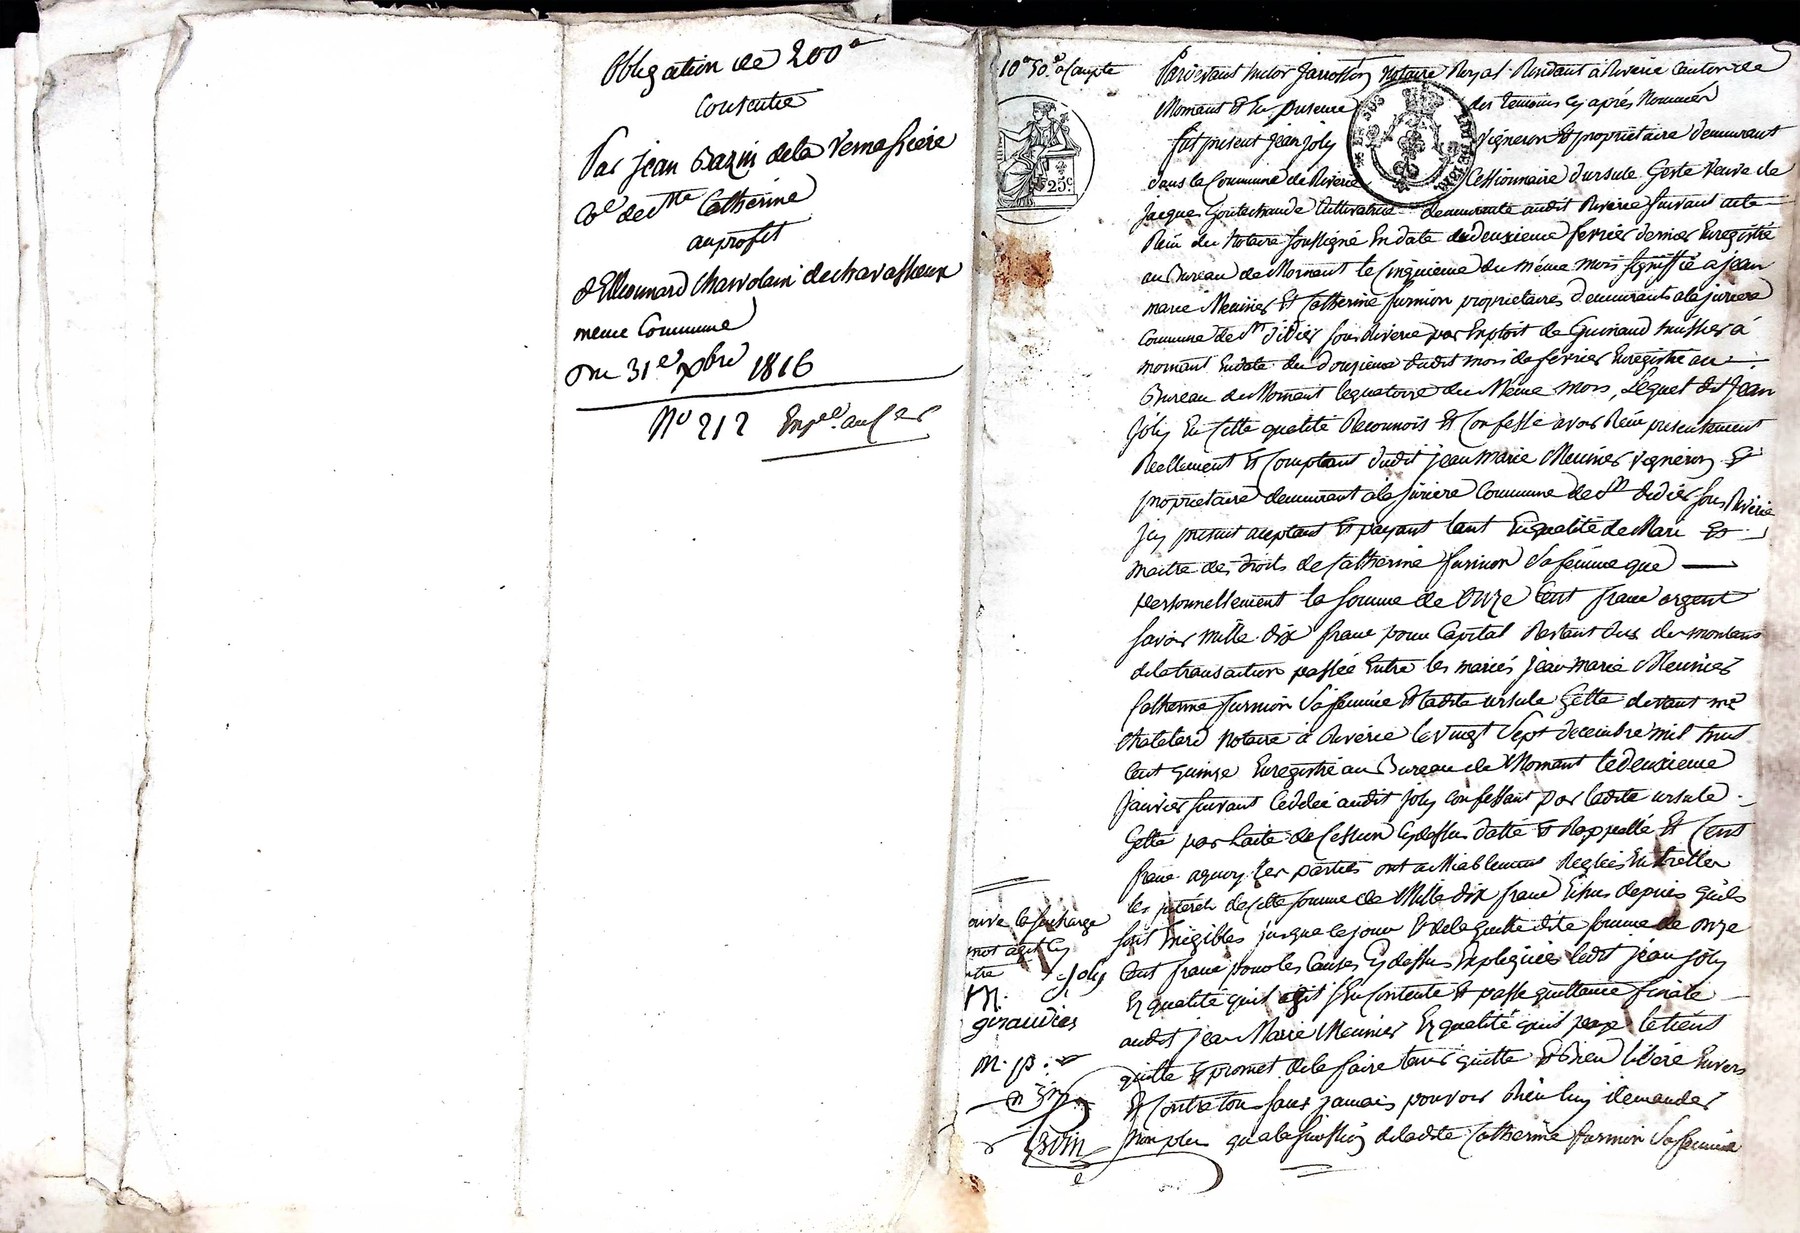 Obligation de 200
Consentie
Par jean Bazin de la Vernassiere
Ce de Ste Catherine
au profit
d'Ellconnard Charvolain de chavassieux
meme Commune
Du 31e xbre 1816
No 212
10 50 a Compte
Pardevant Victor Jarrosson Notaire Royal Residant à Riverie Canton de
Mornant Et En presence des temoins Cy aprés Nommés
fut present Jean Joly vigneron Et propriétaire demeurant
dans la Commune de Riverie Cessionnaire d'ursule Gette veuve de
Jacque Cultivatrice demeurante audit Riverie suivant acte
Reçu du Notaire soussigné En date du deuxieme fevrier dernier Enregistré
au Bureau de Mornant le Cinquieme du méme mois signiffié a Jean
marie Meunier Et Catherine furnion propriétaires demeurants a la juriere
Commune de St didier sous Riverie par Exploit de Guinand huissier à
mornant En date du douzieme dudit mois de fevrier Enregistré au
Bureau de Mornant le quatorze du Méme mois, Lequel dit Jean
Joly En Cette qualité Reconnois Et Confesse avoir Reçu presentement
Reellement Et Comptant dudit jean Marie Meunier vigneron Et
propriétaire demeurant a la juriere Commune de St didier sous Riverie
Icy présent aceptant Et payant tant En qualité de Mari Et
maitre des droits de Catherine furnion Sa femme que
personnellement la somme de Onze Cent franc argent
savoir mille dix franc pour Capital Restant dus du montant
de la transaction passée Entre les mariés jean marie Meunier
Catherine furnion Sa femme Et ladite ursule Gette devant me
Chatelard Notaire à Riverie le vingt Sept decembre mil huit
Cent quinze Enregistré au Bureau de Mornant le deuxieme
Janvier suivant Ceddée audit Joly Confessant par ladite ursule
Gette par L'acte de Cession Cy dessus datté Et Rappellé Et Cent
franc a quoy les parties ont amiablement Reglées Entr'elles
les jnterets de Cette somme de Mille dix franc Echus depuis qu'ils
sont Exigibles jusque Ce jour Et de laquelle dite somme de Onze
Cent franc pour les Causes Cy dessus Expliquées ledit Jean Joly
En qualité qu'il agit s'En Contente Et passe quittance finale
audit jean Marie Meunier En qualité qu'il paye le tient
quitte Et promet de le faire tenir quitte Et Bien libéré Envers
Et Contre tous sans jamais pouvoir Rien luy demander
Non plus qu'a la sucession de ladite Catherine furnion Sa femme
la surcharge
mot agit Cy
Joly
M.
giraudier
m. p.
25c